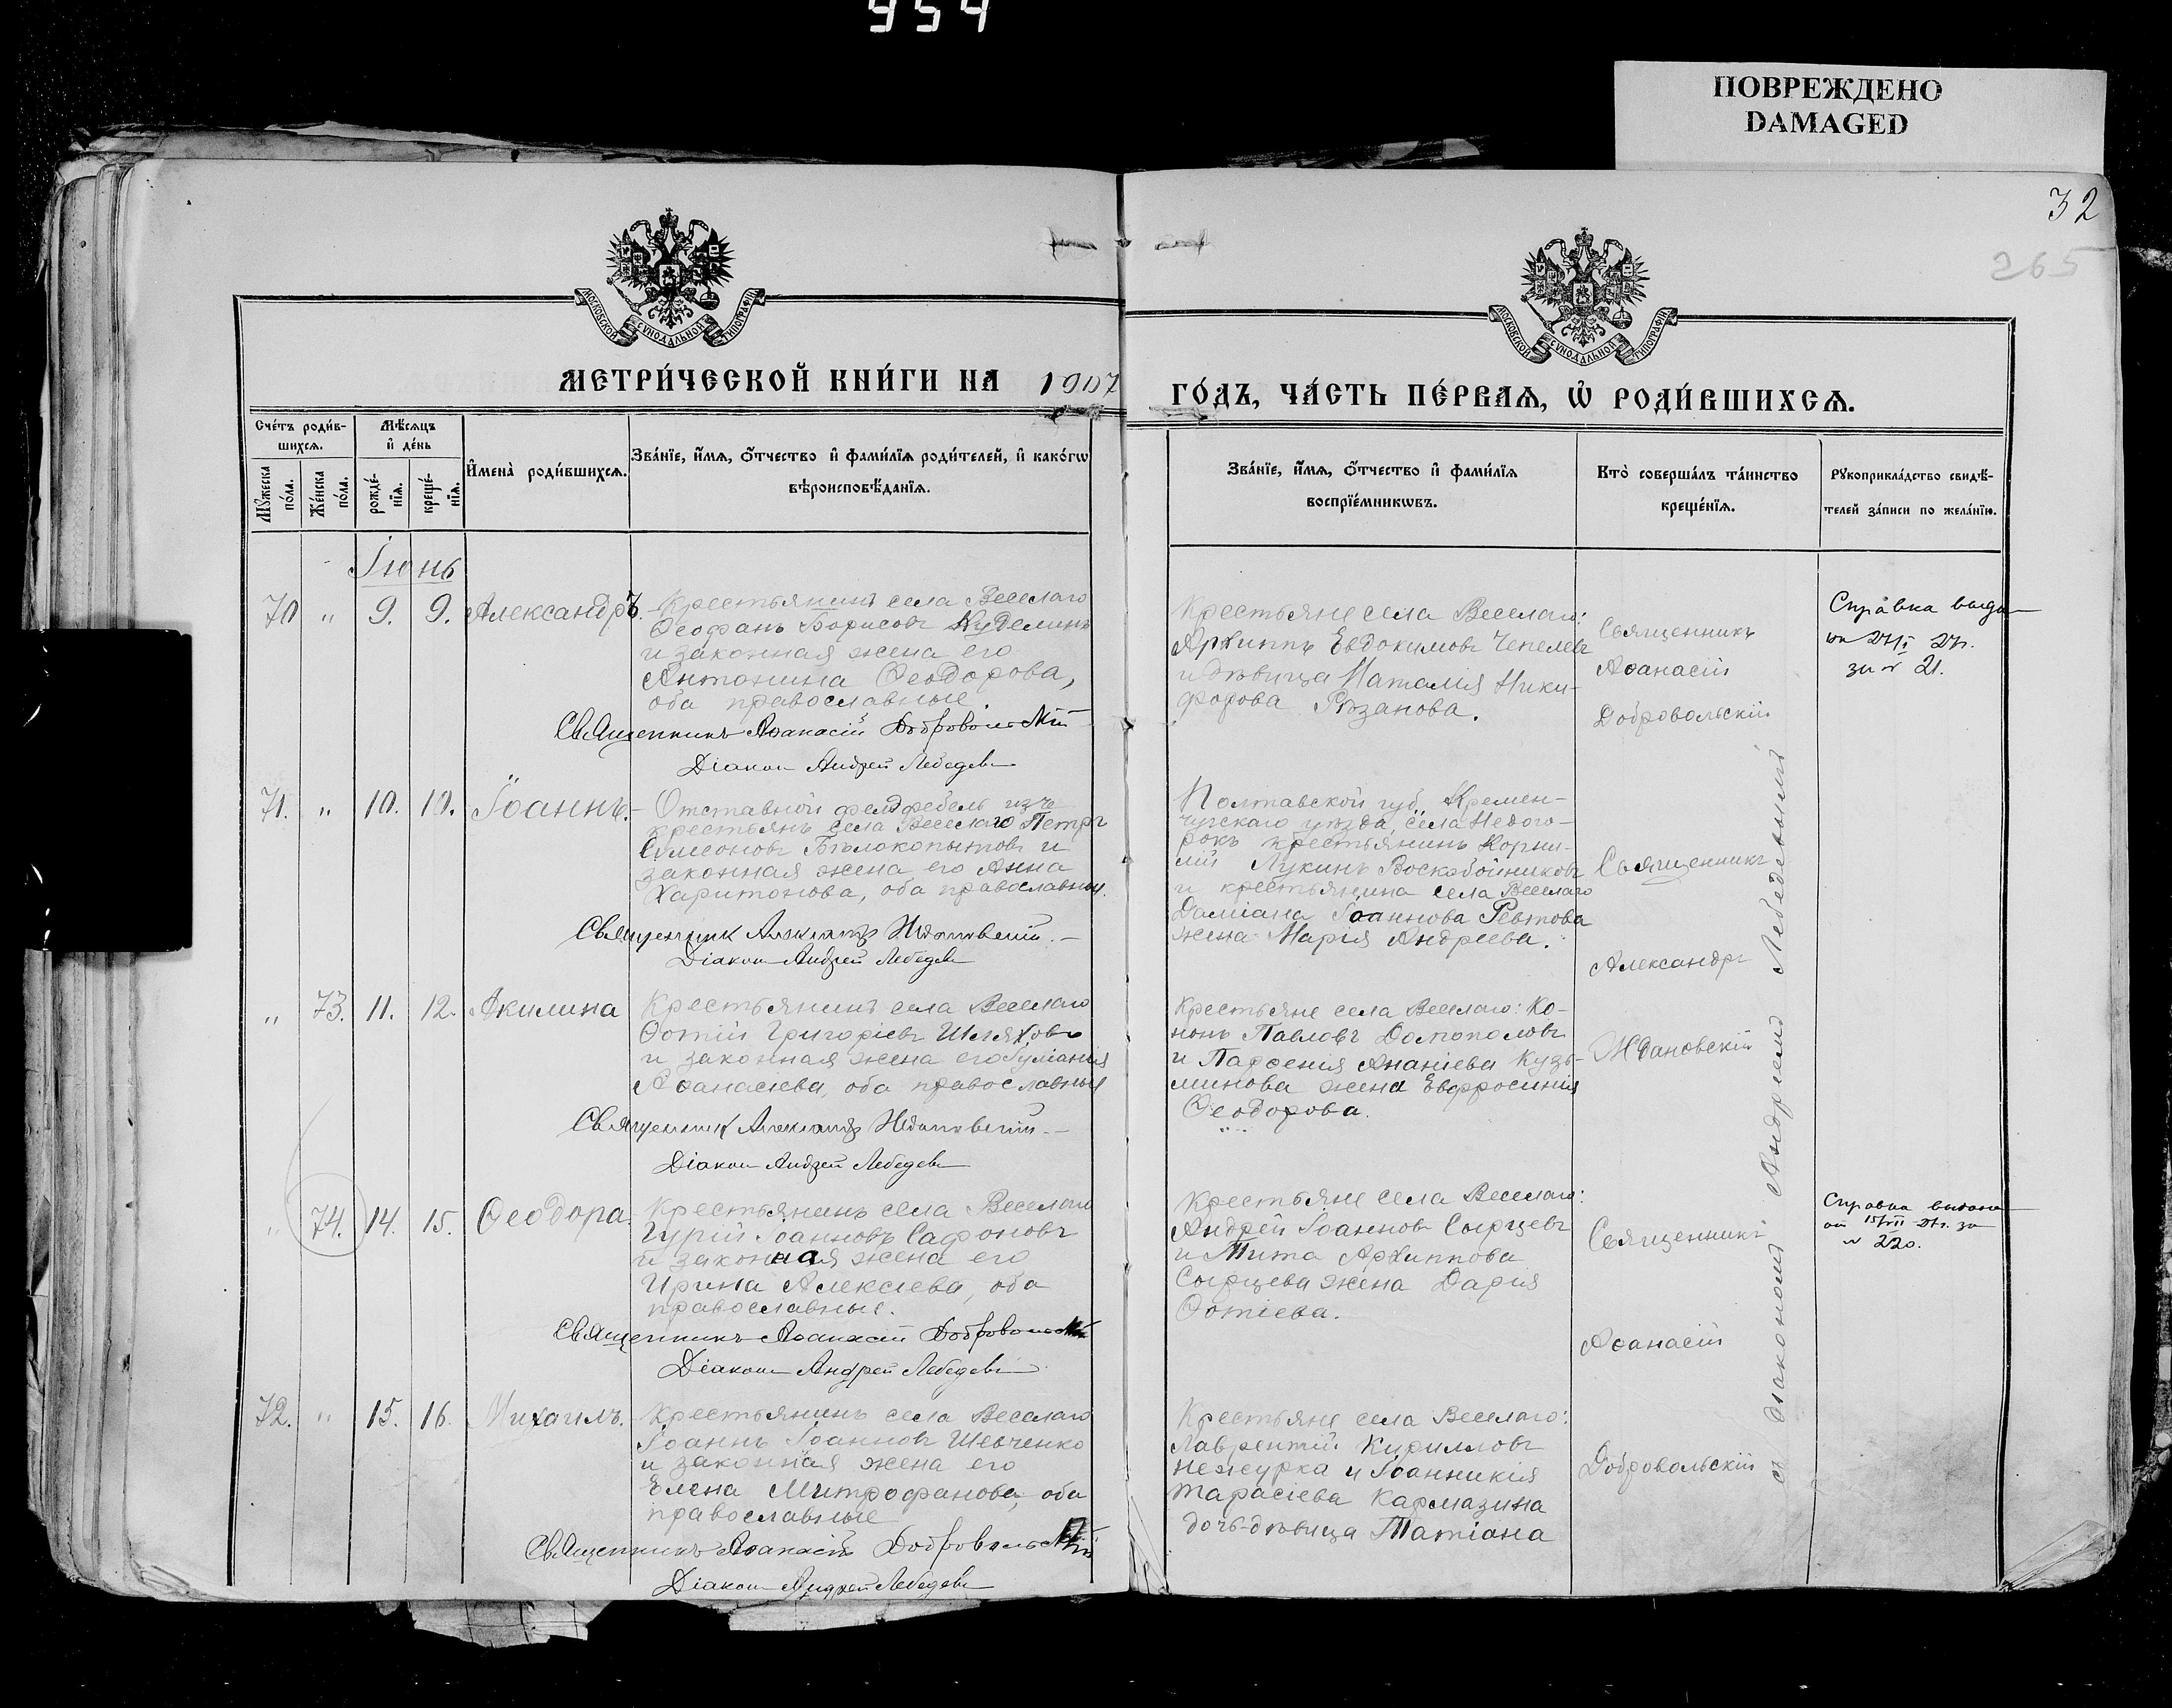 954
ПОВРЕЖДЕНО
DAMAGED
32
265
МОСКОВСКОЙ СУНОДАЛЬНОЙ ТИПОГРАФІИ
МОСКОВСКОЙ СУНОДАЛЬНОЙ ТИПОГРАФІИ
МЕТРИ́ЧЕСКОЙ КНИ́ГИ НА 1907
ГО́ДЪ, ЧА́СТЬ ПЕ́РВАѦ, Ѡ҆ РОДИ́ВШИХСѦ.
Сче́тъ роди́в-
шихсѧ.
Мꙋжеска по́ла.
Же́нска по́ла.
Мѣ́сѧцъ
и҆ де́нь
рожде́-
нїѧ.
креще́-
нїѧ.
И҆мена̀ роди́вшихсѧ.
Зва́нїе, и҆́мѧ, ѻ҆́тчество и҆ фами́лїѧ роди́телей, и҆ како́гѡ
вѣроисповѣ́данїѧ.
Зва́нїе, и҆́мѧ, ѻ҆́тчество и҆ фами́лїѧ
воспрїе́мникѡвъ.
Кто̀ соверша́лъ та́инство
креще́нїѧ.
Рꙋкоприкла́дство свидѣ́-
телей за́писи по жела́нїю.
Іюнь
70 " 9. 9. Александръ.
Крестьянинъ села Веселаго
Ѳеофанъ Борисовъ Куделинъ
и законная жена его
Антонина Ѳеодорова,
оба православные.
Священникъ Аѳанасій Добровольскій
Діаконъ Андрей Лебедевъ
Крестьяне села Веселаго:
Архиппъ Евдокимовъ Чепелевъ
и дѣвица Наталія Ники-
форова Рѣзанова.
Священникъ
Аѳанасій
Добровольскій
Справка выда
за № 21.
71. " 10. 10. Іоаннъ.
Отставной фелдфебель изъ
крестьянъ села Веселаго Петръ
Сѵмеоновъ Бѣлокопытовъ и
законная жена его Анна
Харитонова, оба православные.
Священникъ Александръ Ждановскій.
Діаконъ Андрей Лебедевъ
Полтавской губ. Кремен-
чугскаго уѣзда, села Недого-
рокъ крестьянинъ Корни-
лій Лукинъ Воскобойниковъ
и крестьянина села Веселаго
Даміана Іоаннова Ревтова
жена Марія Андреева.
Священникъ
Александръ
Ждановскій
" 73. 11. 12. Акилина
Крестьянинъ села Веселаго
Ѳотій Григоріевъ Шляховъ
и законная жена его Іуліанія
Аѳанасіева, оба православные
Священникъ Александръ Ждановскій.
Діаконъ Андрей Лебедевъ
Крестьяне села Веселаго: Ко-
нонъ Павловъ Домополовъ
и Парѳенія Ананіева Кузь-
минова жена Евфросинія
Ѳеодорова.
" 74. 14. 15. Ѳеодора.
Крестьянинъ села Веселаго
Гурій Іоанновъ Сафоновъ
и законная жена его
Ирина Алексіева, оба
православные.
Священникъ Аѳанасій Добровольскій
Діаконъ Андрей Лебедевъ
Крестьяне села Веселаго:
Андрей Іоанновъ Сырцевъ
и Тита Архиппова
Сырцева жена Дарія
Ѳотіева.
Священникъ
Аѳанасій
Добровольскій
Справка выдана
за
№ 220.
72. " 15. 16. Михаилъ.
Крестьянинъ села Веселаго
Іоаннъ Іоанновъ Шевченко
и законная жена его
Елена Митрофанова, оба
православные
Священникъ Аѳанасій Добровольскій
Діаконъ Андрей Лебедевъ
Крестьяне села Веселаго:
Лаврентій Кирилловъ
Нежурка и Іоанникія
Тарасіева Кармазина
дочь-дѣвица Татіана
съ діакономъ Андреемъ Лебедевымъ